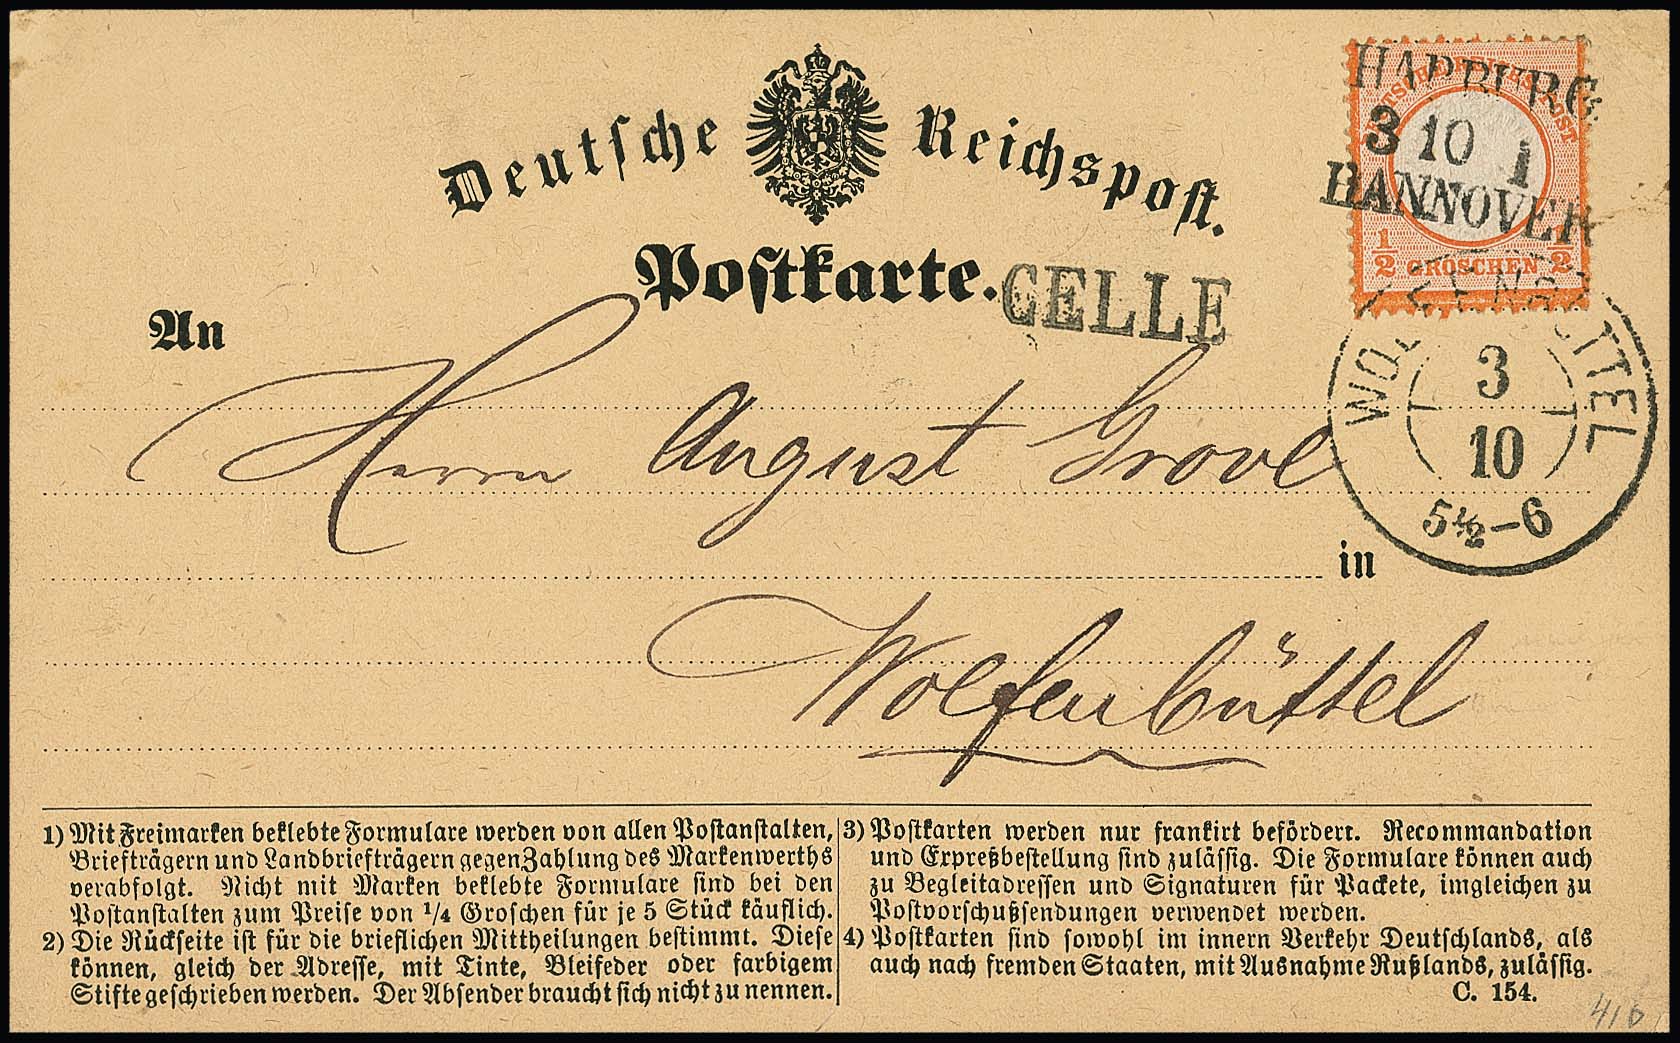 Deutsche Reichspost.
Postkarte.
CELLE
HARBURG
3 10 1
HANNOVER
½ GROSCHEN ½
An
Herrn August Grove
WOLFENBÜTTEL
3
10
5½-6
in
Wolfenbüttel
1) Mit Freimarken beklebte Formulare werden von allen Postanstalten,
Briefträgern und Landbriefträgern gegen Zahlung des Markenwerths
verabfolgt. Nicht mit Marken beklebte Formulare sind bei den
Postanstalten zum Preise von 1/4 Groschen für je 5 Stück käuflich.
2) Die Rückseite ist für die brieflichen Mittheilungen bestimmt. Diese
können, gleich der Adresse, mit Tinte, Bleifeder oder farbigem
Stifte geschrieben werden. Der Absender braucht sich nicht zu nennen.
3) Postkarten werden nur frankirt befördert. Recommandation
und Expreßbestellung sind zulässig. Die Formulare können auch
zu Begleitadressen und Signaturen für Packete, imgleichen zu
Postvorschußsendungen verwendet werden.
4) Postkarten sind sowohl im innern Verkehr Deutschlands, als
auch nach fremden Staaten, mit Ausnahme Rußlands, zulässig.
C. 154.
416